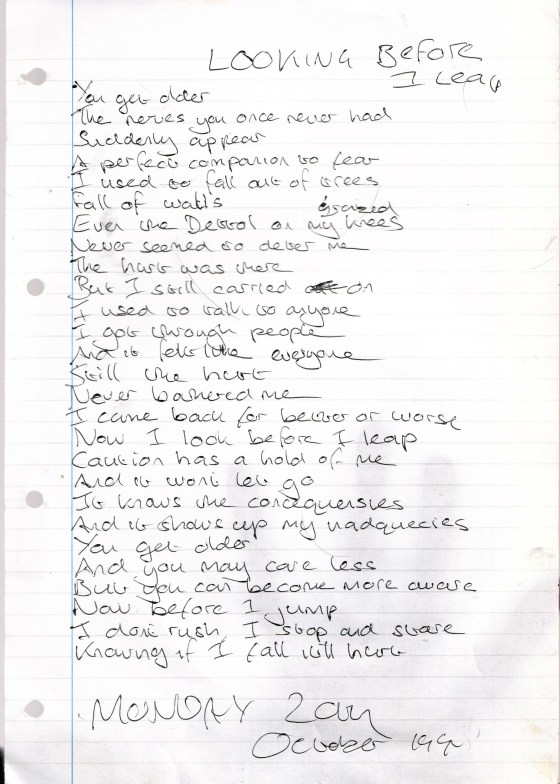 LOOKING BEFORE
I LEAP
You get older
The nerves you once never had
Suddenly appear
A perfect companion to fear
I used to fall out of trees
Fall of walls
grazed
Even the Dettol on my knees
Never seemed to deter me
The hurt was there
But I still carried on
I used to talk to anyone
I got through people
And it felt like everyone
Still the hurt
Never bothered me
I came back for better or worse
Now I look before I leap
Caution has a hold of me
And it wont let go
It knows the concequensies
And it shows up my inadquecies
You get older
And you may care less
But you can become more aware
Now before I jump
I dont rush, I stop and stare
Knowing if I fall itll hurt
MONDAY
October